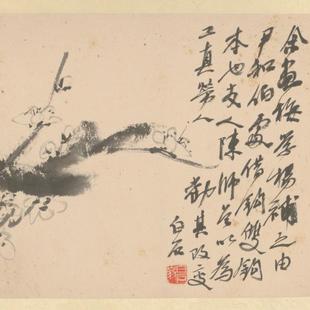 余画梅学杨補之由
尹和伯處借鈎雙鈎
本也友人陳師曾以為
工真勞人
勸其改變
白石